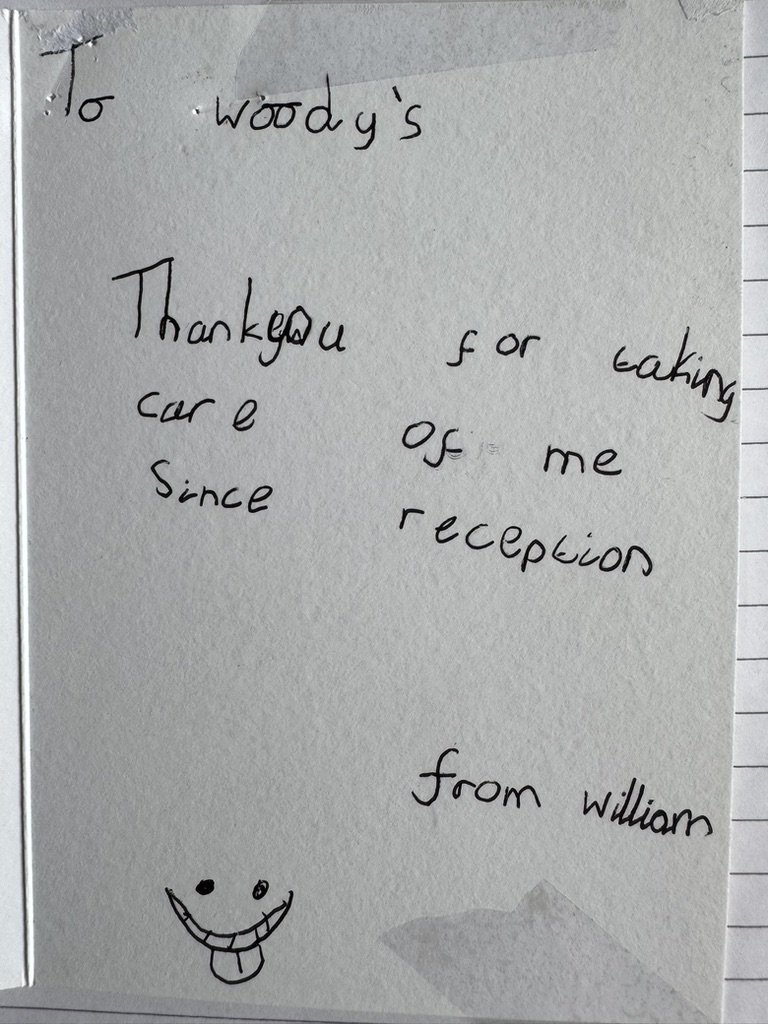 To woody's
Thankyou for taking
care of me
Since reception
from william